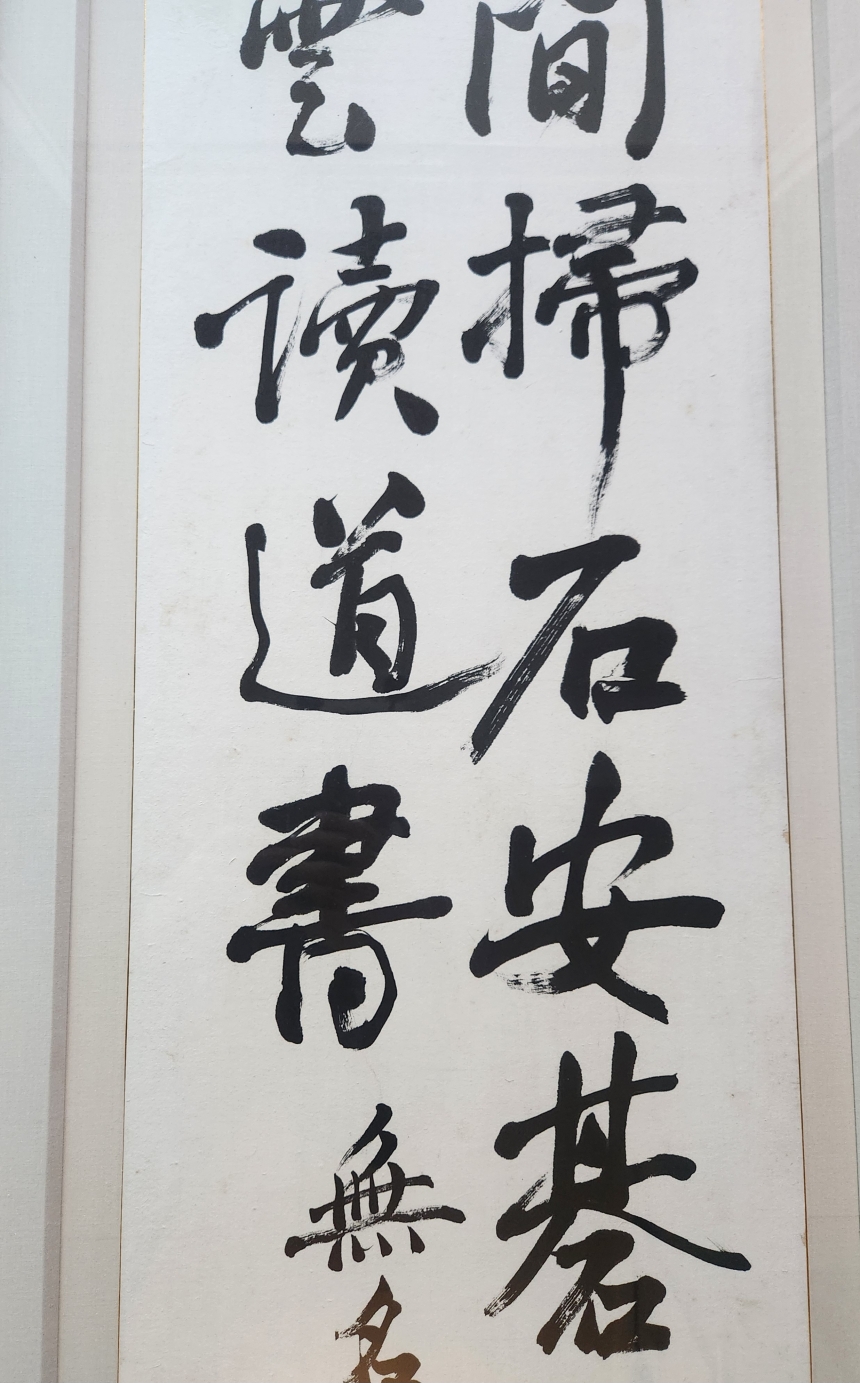 間掃石安碁
雲讀道書 無名